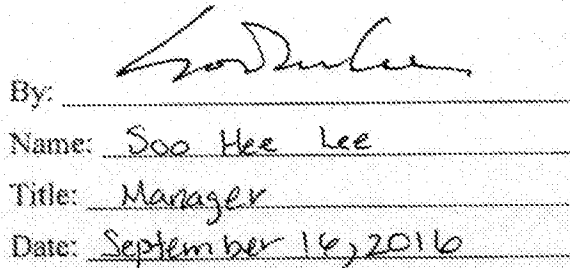 By:
Name: Soo Hee Lee
Title: Manager
Date: September 16, 2016